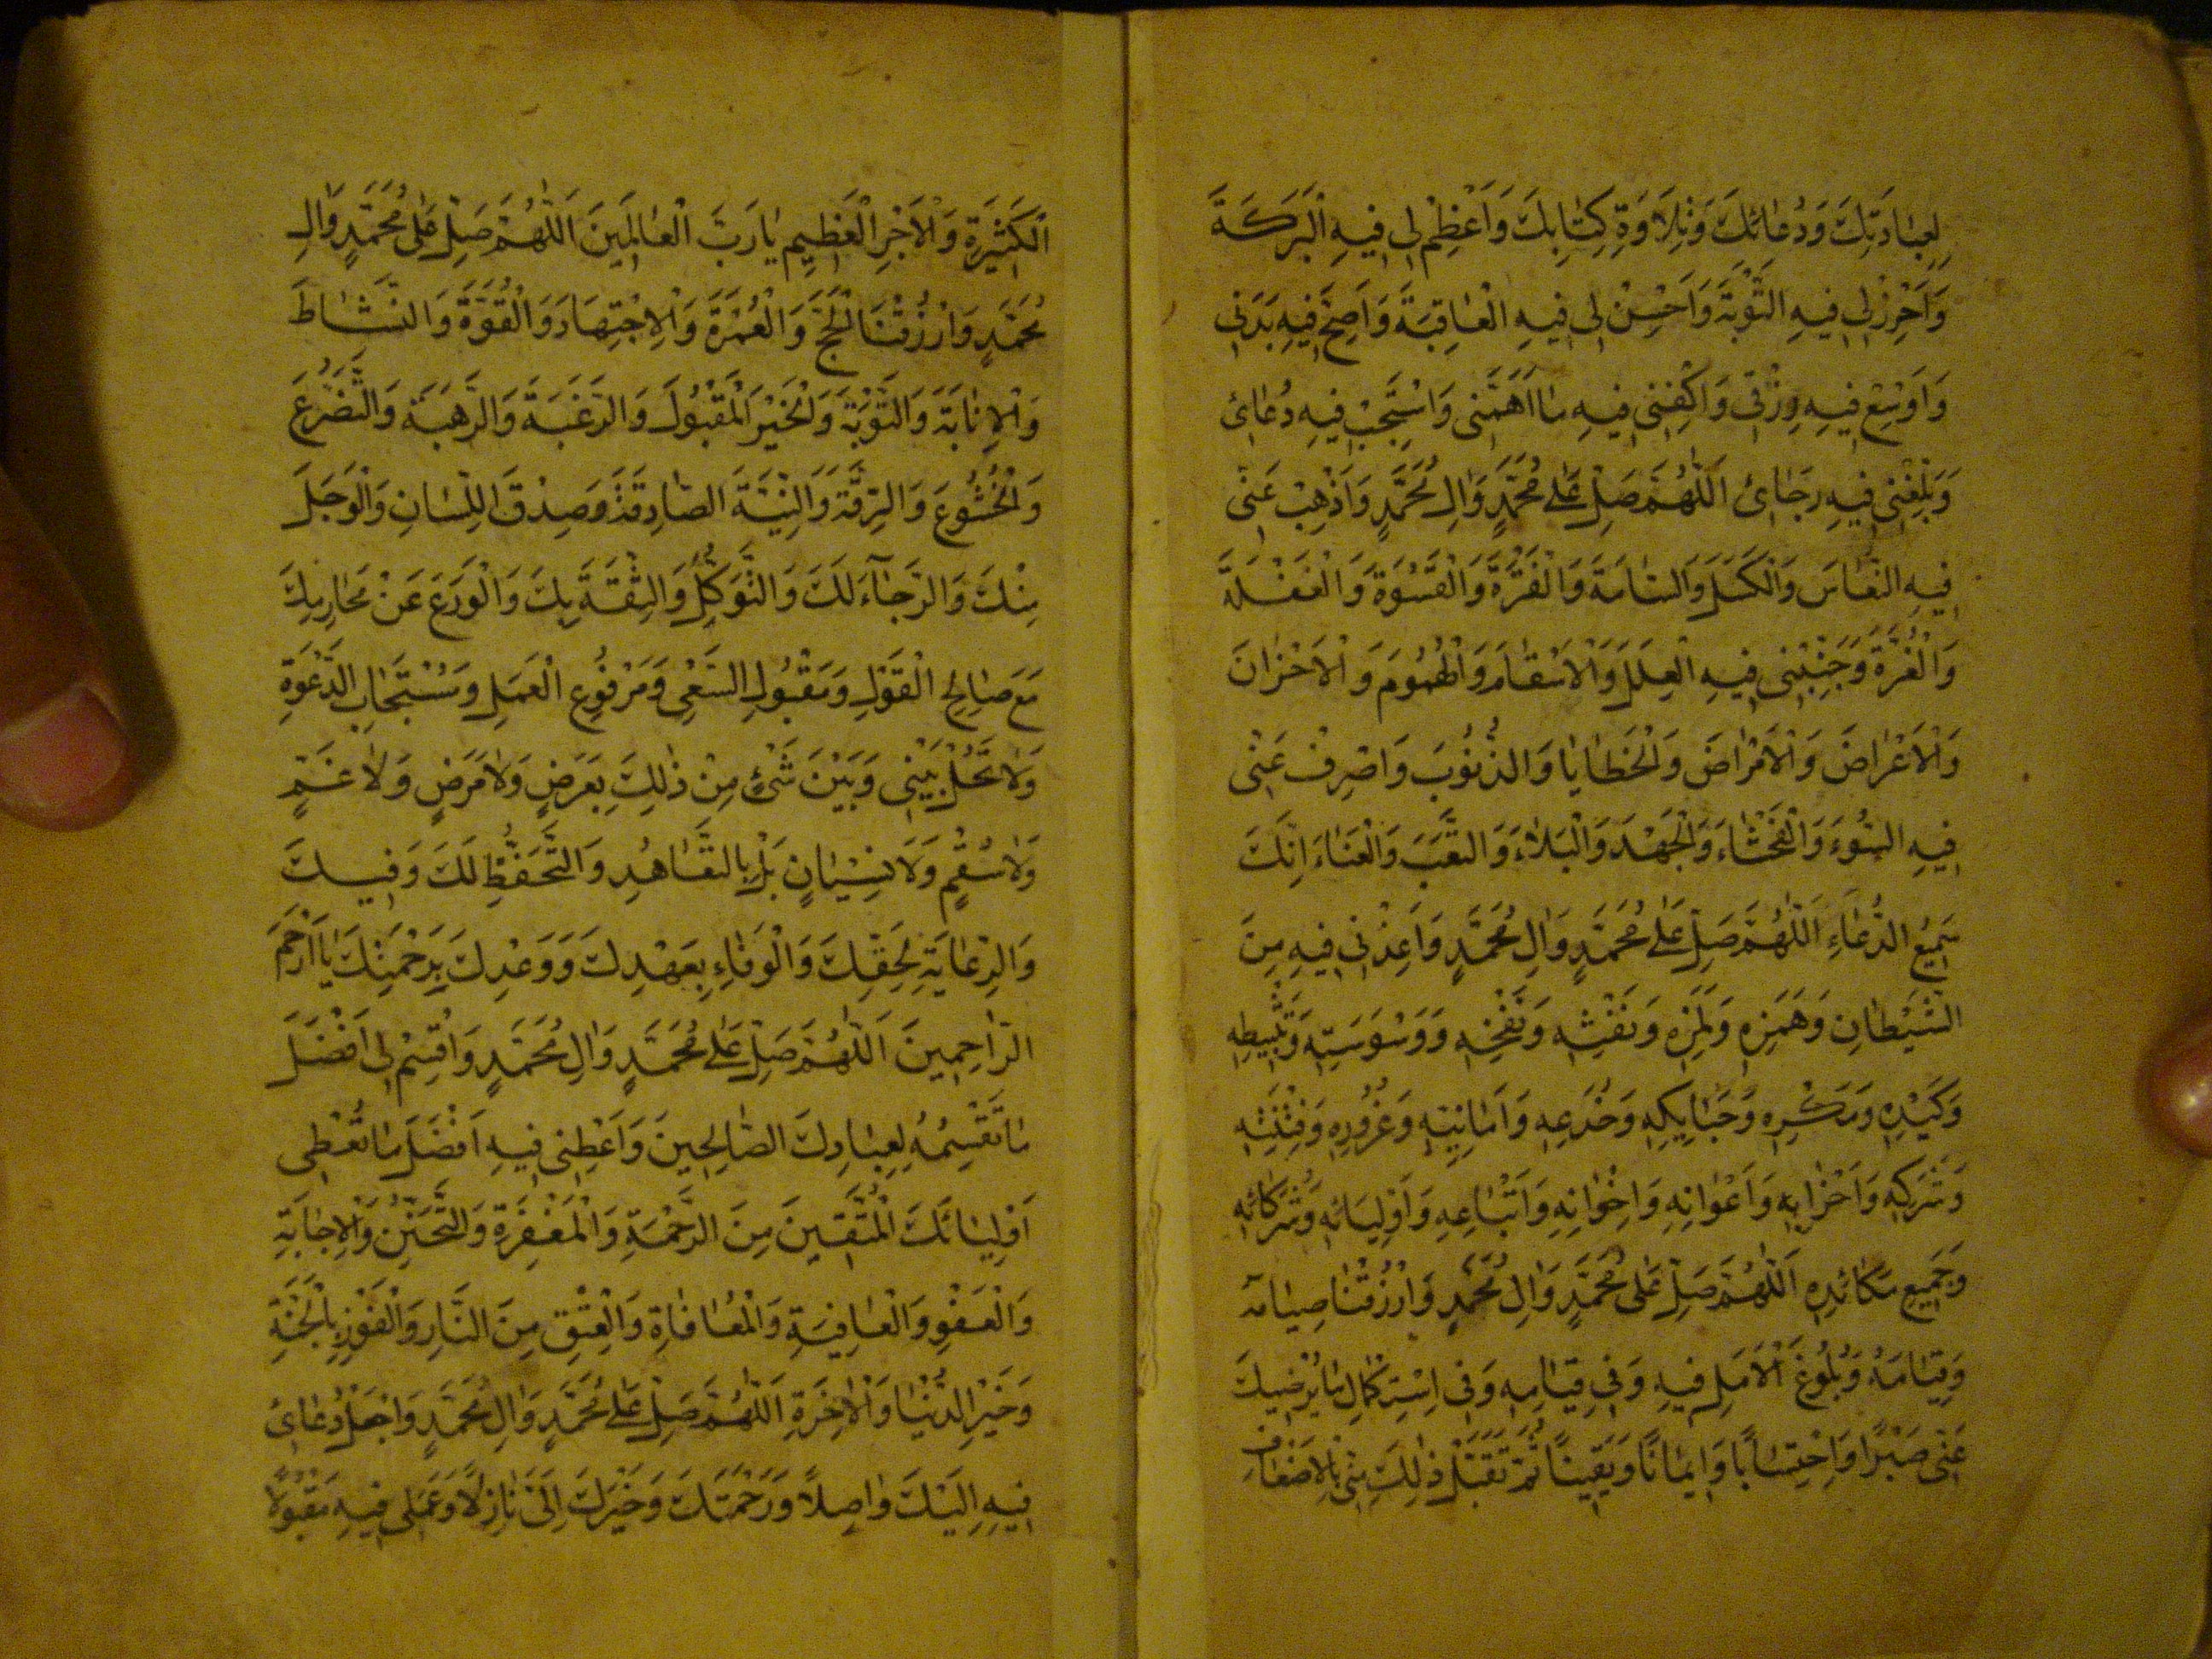 لِعِبَادَتِكَ وَدُعَائِكَ وَتِلَاوَةِ كِتَابِكَ وَاَعْظِمْ لِي فِيهِ الْبَرَكَةَ
وَاَحْرِزْ لِي فِيهِ التَّوْبَةَ وَاَحْسِنْ لِي فِيهِ الْعَاقِبَةَ وَاَصِحَّ فِيهِ بَدَنِي
وَاَوْسِعْ فِيهِ رِزْقِي وَاكْفِنِي فِيهِ مَا اَهَمَّنِي وَاسْتَجِبْ فِيهِ دُعَائِ
وَبَلِّغْنِي فِيهِ رَجَائِ اَللّٰهُمَّ صَلِّ عَلٰى مُحَمَّدٍ وَاٰلِ مُحَمَّدٍ وَاَذْهِبْ عَنِّي
فِيهِ النُّعَاسَ وَالْكَسَلَ وَالسَّامَةَ وَالْفَتْرَةَ وَالْقَسْوَةَ وَالْغَفْلَةَ
وَالْغُرَّةَ وَجَنِّبْنِي فِيهِ الْعِلَلَ وَالْاَسْقَامَ وَالْهُمُومَ وَالْاَحْزَانَ
وَالْاَعْرَاضَ وَالْاَمْرَاضَ وَالْخَطَايَا وَالذُّنُوبَ وَاصْرِفْ عَنِّي
فِيهِ السُّوءَ وَالْفَحْشَاءَ وَالْجَهْدَ وَالْبَلَاءَ وَالتَّعَبَ وَالْعَنَاءَ اِنَّكَ
سَمِيعُ الدُّعَاءِ اَللّٰهُمَّ صَلِّ عَلٰى مُحَمَّدٍ وَاٰلِ مُحَمَّدٍ وَاَعِذْنِي فِيهِ مِنَ
الشَّيْطَانِ وَهَمْزِهِ وَلَمْزِهِ وَنَفْثِهِ وَنَفْخِهِ وَوَسْوَسَتِهِ وَتَثْبِيطِهِ
وَكَيْدِهِ وَمَكْرِهِ وَحَبَايِلِهِ وَخُدَعِهِ وَاَمَانِيِّهِ وَغُرُورِهِ وَفِتْنَتِهِ
وَشَرَكِهِ وَاَحْزَابِهِ وَاَعْوَانِهِ وَاِخْوَانِهِ وَاَتْبَاعِهِ وَاَوْلِيَائِهِ وَشُرَكَائِهِ
وَجَمِيعِ مَكَائِدِهِ اَللّٰهُمَّ صَلِّ عَلٰى مُحَمَّدٍ وَاٰلِ مُحَمَّدٍ وَارْزُقْنَا صِيَامَهُ
وَقِيَامَهُ وَبُلُوغَ الْاَمَلِ فِيهِ وَفِي قِيَامِهِ وَفِي اِسْتِكْمَالِ مَا يُرْضِيكَ
عَنِّي صَبْرًا وَاحْتِسَابًا وَاِيمَانًا وَيَقِينًا ثُمَّ تَقَبَّلْ ذٰلِكَ مِنِّي بِالْاَضْعَافِ
الْكَثِيرَةِ وَالْاَجْرِ الْعَظِيمِ يَا رَبَّ الْعَالَمِينَ اَللّٰهُمَّ صَلِّ عَلٰى مُحَمَّدٍ وَاٰلِ
مُحَمَّدٍ وَارْزُقْنَا الْحَجَّ وَالْعُمْرَةَ وَالْاِجْتِهَادَ وَالْقُوَّةَ وَالنَّشَاطَ
وَالْاِنَابَةَ وَالتَّوْبَةَ وَالْخَيْرَ الْمَقْبُولَ وَالرَّغْبَةَ وَالرَّهْبَةَ وَالتَّضَرُّعَ
وَالْخُشُوعَ وَالرِّقَّةَ وَالنِّيَّةَ الصَّادِقَةَ وَصِدْقَ اللِّسَانِ وَالْوَجَلَ
مِنْكَ وَالرَّجَاءَ لَكَ وَالتَّوَكُّلَ وَالثِّقَةَ بِكَ وَالْوَرَعَ عَنْ مَحَارِمِكَ
مَعَ صَالِحِ الْقَوْلِ وَمَقْبُولِ السَّعْيِ وَمَرْفُوعِ الْعَمَلِ وَمُسْتَجَابِ الدَّعْوَةِ
وَلَا تَحُلْ بَيْنِي وَبَيْنَ شَيْءٍ مِنْ ذٰلِكَ بِعَرَضٍ وَلَا مَرَضٍ وَلَا غَمٍّ
وَلَا سُقْمٍ وَلَا نِسْيَانٍ بَلْ بِالتَّعَاهُدِ وَالتَّحَفُّظِ لَكَ وَفِيكَ
وَالرِّعَايَةِ لِحَقِّكَ وَالْوَفَاءِ بِعَهْدِكَ وَوَعْدِكَ بِرَحْمَتِكَ يَا اَرْحَمَ
الرَّاحِمِينَ اَللّٰهُمَّ صَلِّ عَلٰى مُحَمَّدٍ وَاٰلِ مُحَمَّدٍ وَاقْسِمْ لِي اَفْضَلَ
مَا تَقْسِمُهُ لِعِبَادِكَ الصَّالِحِينَ وَاَعْطِنِي فِيهِ اَفْضَلَ مَا تُعْطِي
اَوْلِيَائَكَ الْمُتَّقِينَ مِنَ الرَّحْمَةِ وَالْمَغْفِرَةِ وَالتَّحَنُّنِ وَالْاِجَابَةِ
وَالْعَفْوِ وَالْعَافِيَةِ وَالْمُعَافَاةِ وَالْعِتْقِ مِنَ النَّارِ وَالْفَوْزِ بِالْجَنَّةِ
وَخَيْرِ الدُّنْيَا وَالْاٰخِرَةِ اَللّٰهُمَّ صَلِّ عَلٰى مُحَمَّدٍ وَاٰلِ مُحَمَّدٍ وَاجْعَلْ دُعَائِ
فِيهِ اِلَيْكَ وَاصِلًا وَرَحْمَتَكَ وَخَيْرَكَ اِلَيَّ نَازِلًا وَعَمَلِي فِيهِ مَقْبُولًا